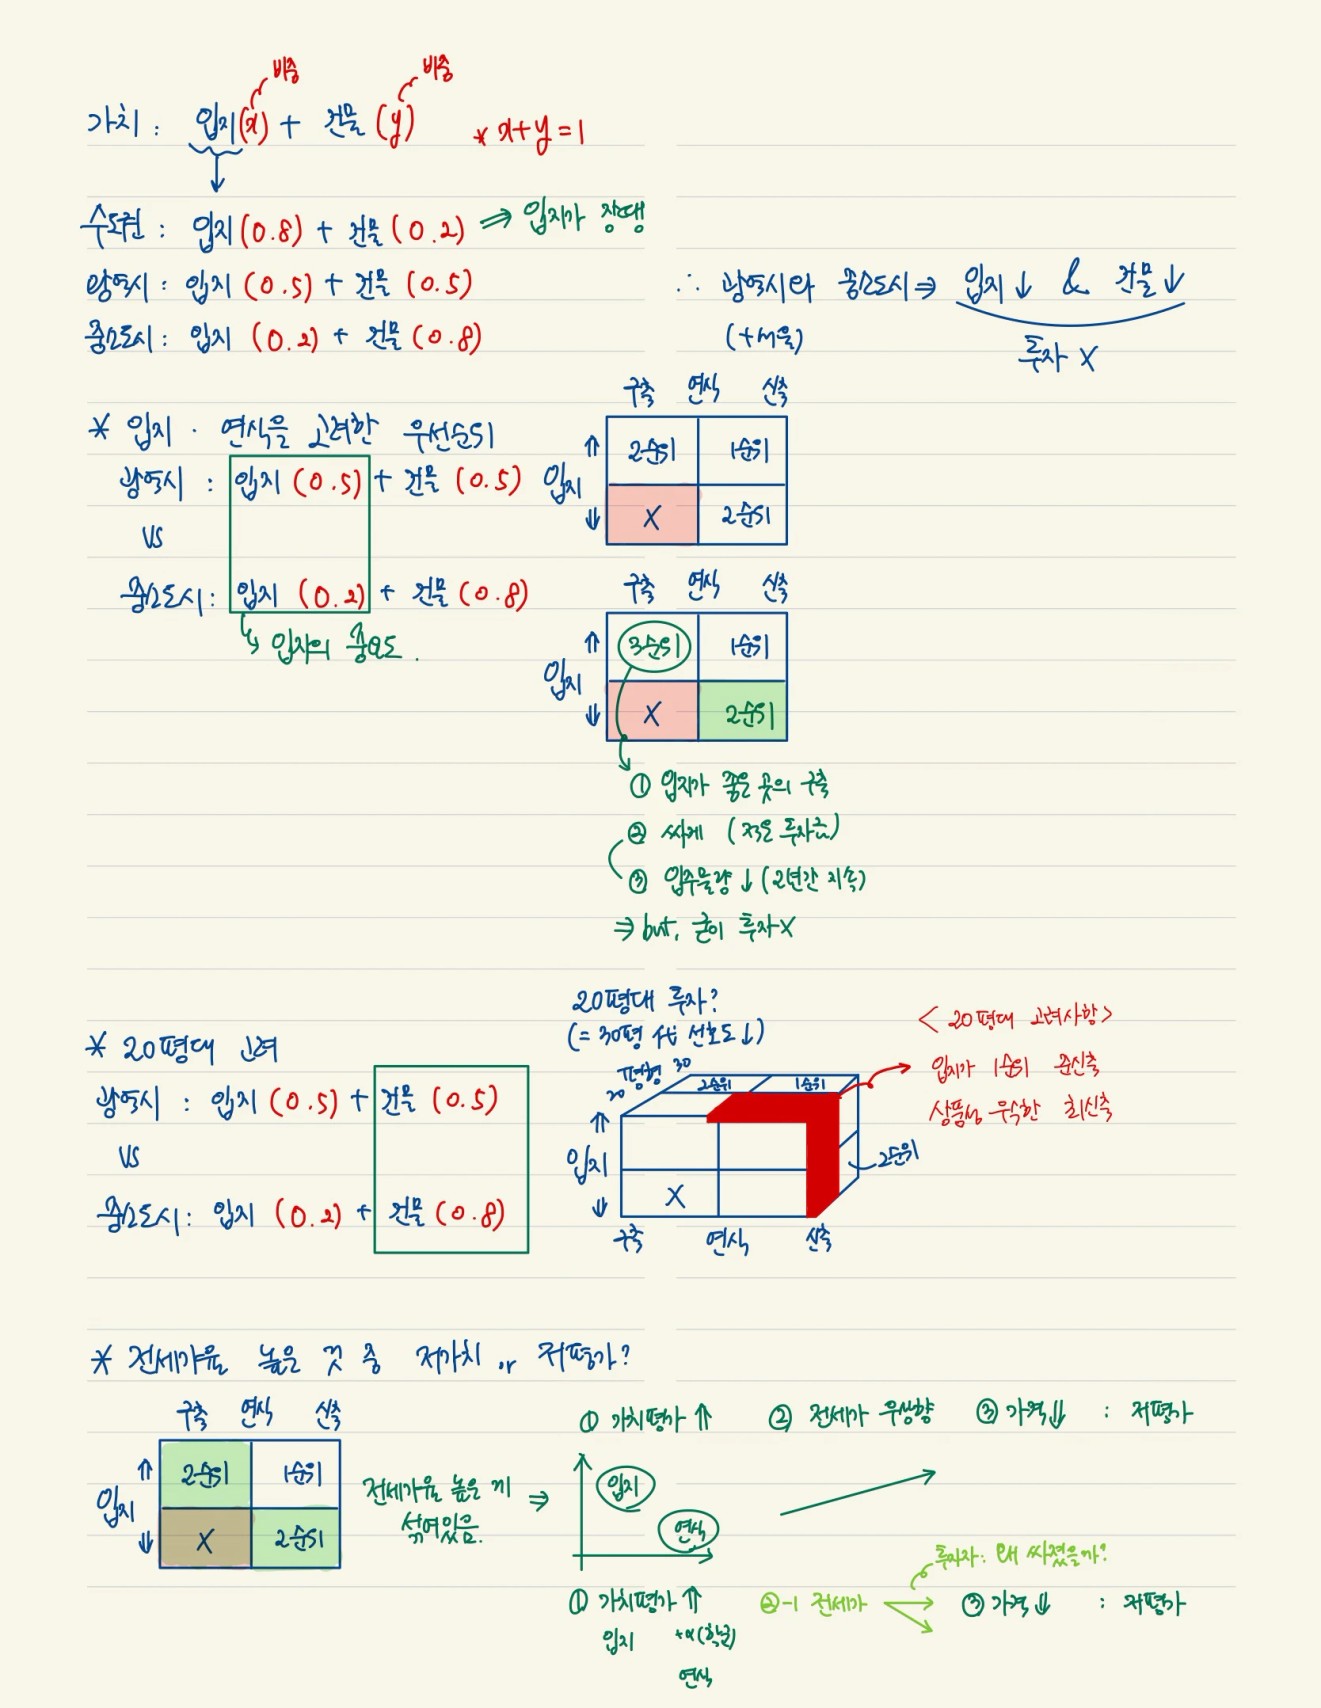 비중 비중
가치 : 입지(x) + 건물 (y) * x+y=1
수도권 : 입지(0.8) + 건물(0.2) ⇒ 입지가 장땡
광역시 : 입지 (0.5) + 건물 (0.5)
중소도시 : 입지 (0.2) + 건물 (0.8)
∴ 광역시와 중소도시 ⇒ 입지↓ & 건물↓
투자 X
* 입지 · 연식을 고려한 우선순위
광역시 : 입지 (0.5) + 건물 (0.5)
VS
중소도시 : 입지 (0.2) + 건물 (0.8)
↳ 입지의 중요도.
구축 연식 신축
↑ 2순위 1순위
입지
↓ X 2순위
구축 연식 신축
↑ 3순위 1순위
입지
↓ X 2순위
① 입지가 좋은 곳의 구축
② 싸게 (적은 투자금)
③ 입주물량↓ (2년간 지속)
⇒ but, 굳이 투자X
* 20평대 고려
광역시 : 입지 (0.5) + 건물 (0.5)
VS
중소도시 : 입지 (0.2) + 건물 (0.8)
20평대 투자?
(= 30평 代 선호도↓)
평형 30
20 2순위 1순위
↑
입지 2순위
↓ X
구축 연식 신축
< 20평대 고려사항>
입지가 1순위 준신축
상품성 우수한 최신축
* 전세가율 높은 것 중 저가치 or 저평가?
구축 연식 신축
↑ 2순위 1순위
입지
↓ X 2순위
전세가율 높은 게 ⇒
섞여있음.
① 가치평가 ↑ ② 전세가 우상향 ③ 가격↓ : 저평가
입지
연식
투자자: 왜 싸졌을까?
① 가치평가 ↑ ②-1 전세가 ③ 가격↓ : 저평가
입지 +α(학군)
연식